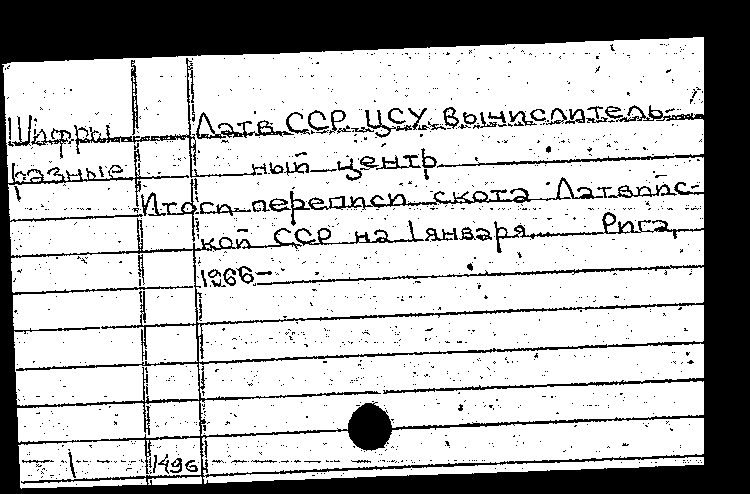 Шифры
разные
Латв ССР. ЦСУ. Вычислитель-
ный центр
Итоги переписи скота Латвийс-
кой ССР на 1 января. Рига,
1966-
1 1496